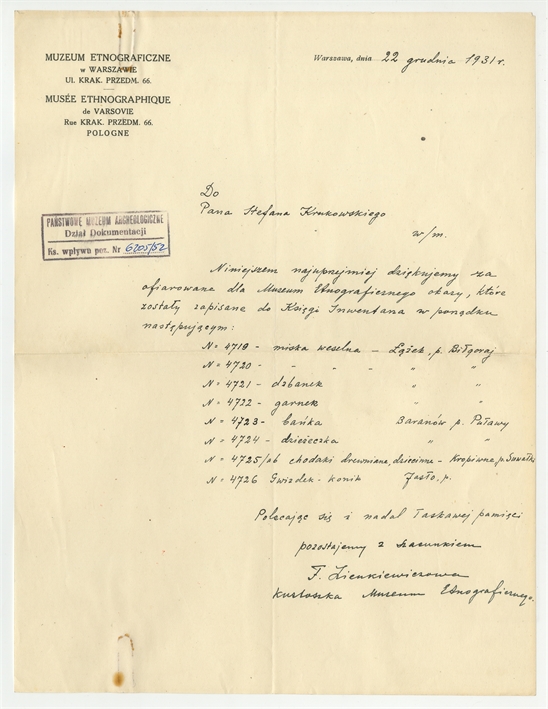 MUZEUM ETNOGRAFICZNE
w WARSZAWIE
UL. KRAK. PRZEDM. 66.
MUSÉE ETHNOGRAPHIQUE
de VARSOVIE
Rue KRAK. PRZEDM. 66.
POLOGNE
Warszawa, dnia 22 grudnia 1931 r.
PAŃSTWOWE MUZEUM ARCHEOLOGICZNE
Dział Dokumentacji
Ks. wpływu poz. Nr 6205/52
Do
Pana Stefana Krukowskiego
w/m.
Niniejszem najuprzejmiej dziękujemy za
ofiarowane dla Muzeum Etnograficznego okazy, które
zostały zapisane do Księgi Inwentarza w porządku
następującym:
N= 4719 - miska weselna - Łążek, p. Biłgoraj
N= 4720 - " " " "
N= 4721 - dzbanek " "
N= 4722 - garnek " "
N= 4723 - bańka Baranów p. Puławy
N= 4724 - dzieżeczka " "
N= 4725/ab chodaki drewniane, dziecinne - Kropiwna p. Suwałki
N= 4726 Gwizdek - konik Jasło, p.
Polecając się i nadal łaskawej pamięci
pozostajemy z szacunkiem
F. Zienkiewiczowa
kustoszka Muzeum Etnograficznego.